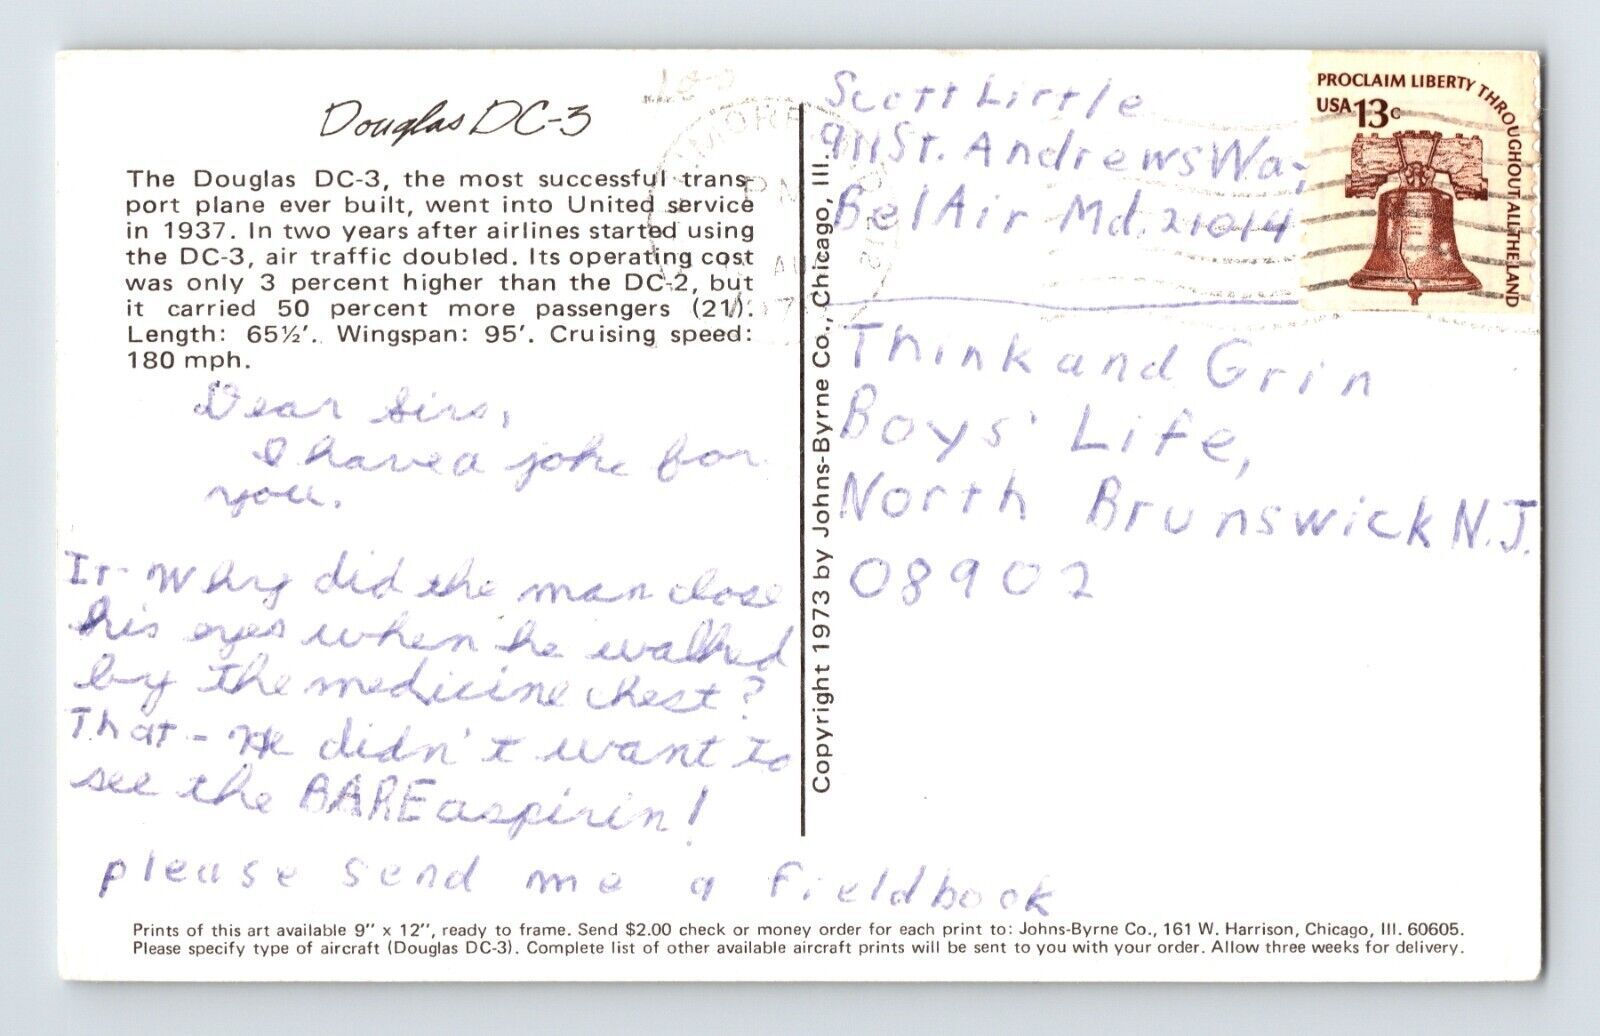 Douglas DC-3
The Douglas DC-3, the most successful trans-
port plane ever built, went into United service
in 1937. In two years after airlines started using
the DC-3, air traffic doubled. Its operating cost
was only 3 percent higher than the DC-2, but
it carried 50 percent more passengers (21).
Length: 65½'. Wingspan: 95'. Cruising speed:
180 mph.
Dear Sirs,
I have a joke for
you.
It- Why did the man close
his eyes when he walked
by the medicine chest?
That- He didn't want to
see the BARE aspirin!
please send me a Fieldbook
Copyright 1973 by Johns-Byrne Co., Chicago, Ill.
Scott Little
911 St. Andrews Way
Bel Air Md. 21014
PROCLAIM LIBERTY THROUGHOUT ALL THE LAND
USA 13c
PM
Think and Grin
Boys' Life,
North Brunswick N.J.
08902
Prints of this art available 9" x 12", ready to frame. Send $2.00 check or money order for each print to: Johns-Byrne Co., 161 W. Harrison, Chicago, Ill. 60605.
Please specify type of aircraft (Douglas DC-3). Complete list of other available aircraft prints will be sent to you with your order. Allow three weeks for delivery.